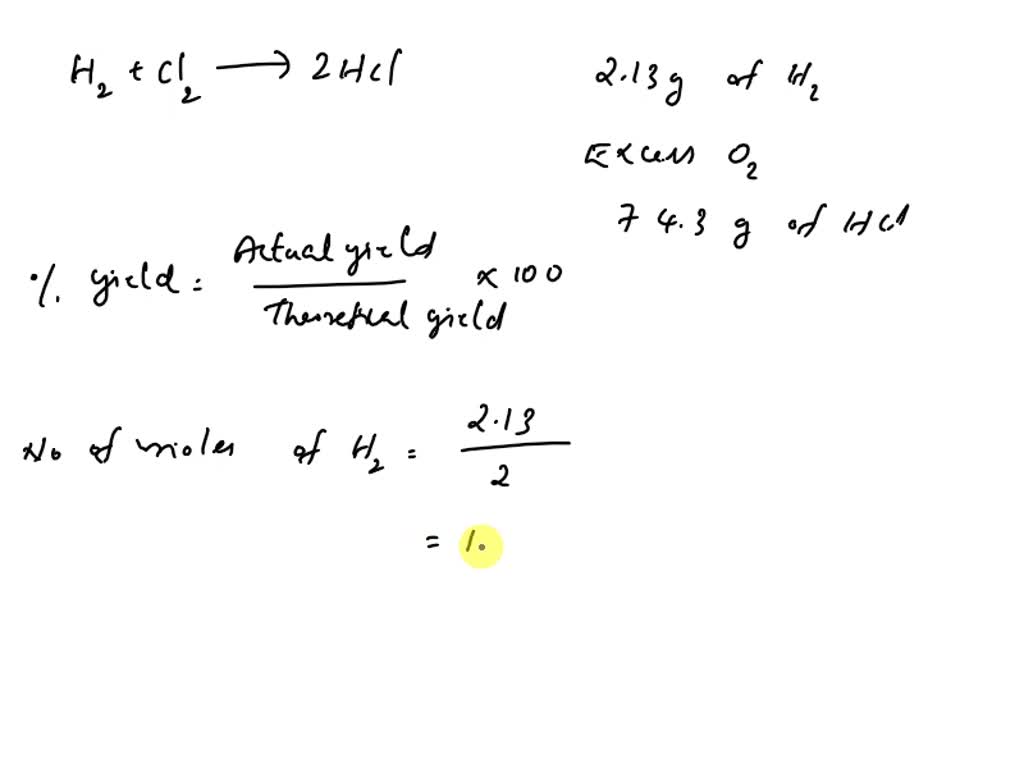 H₂ + Cl₂ ⟶ 2HCl
2.13g of H₂
Excess O₂
74.3 g of HCl
% yield = Actual yield / Theoretical yield × 100
No of moles of H₂ = 2.13 / 2
= 1.